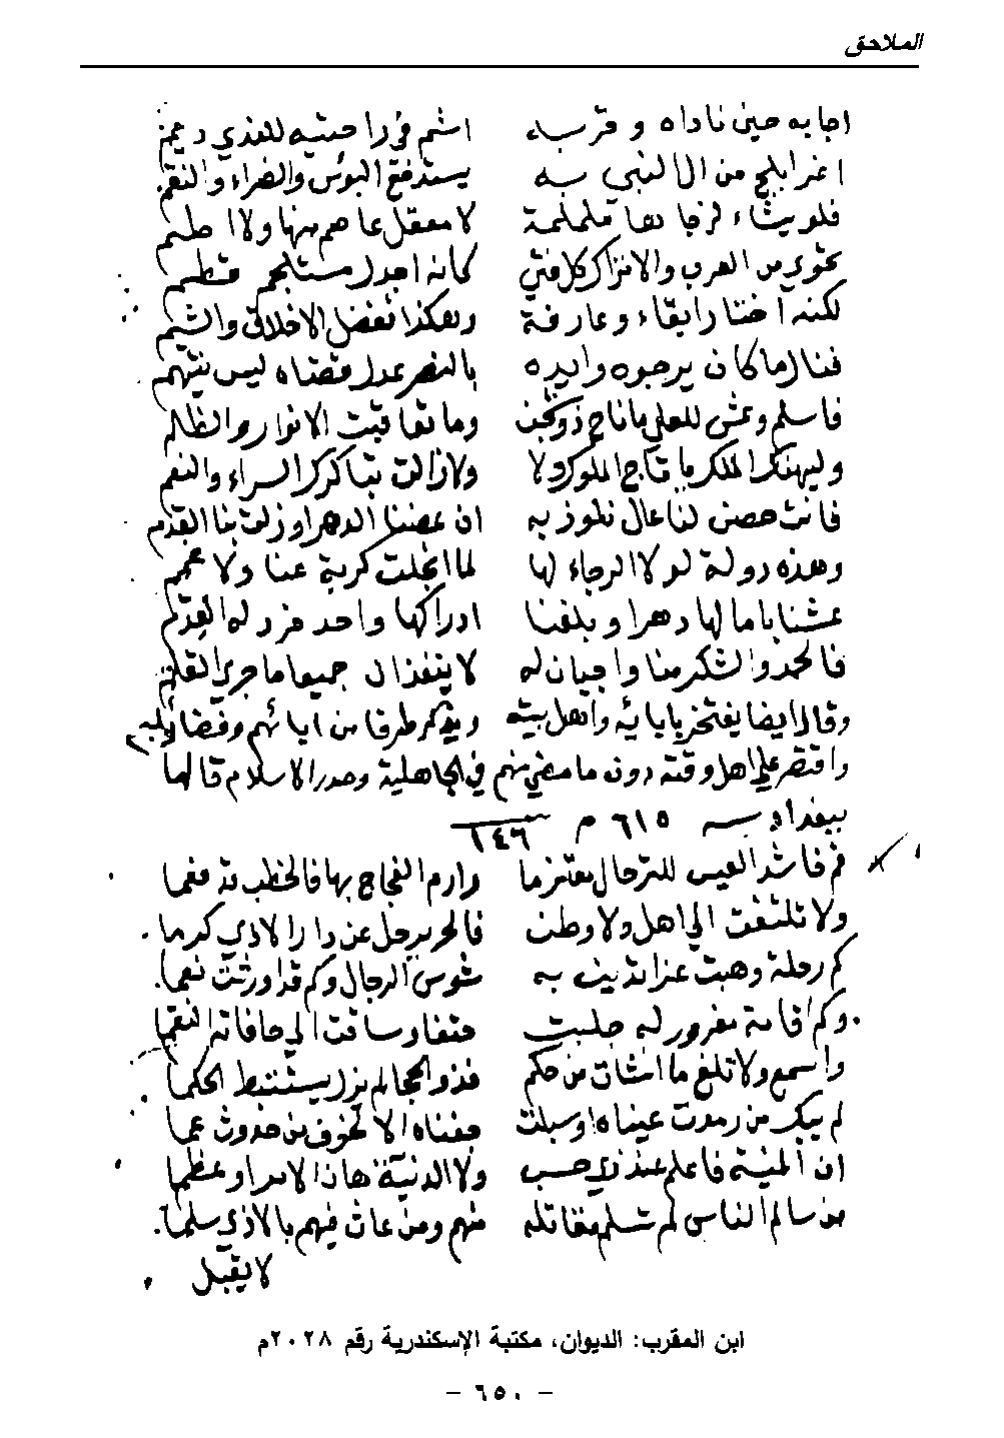 الملاحق
اجابه حين ناداه وقربه اشم في راحتيه للندي ديم
اغر ابلج من ال النبي به يستدفع البؤس والضراء والنقم
فلو يشاء لزجاها ململمة لا معقل عاصم منها ولا اطم
تحوي من العرب والاتراك كل فتي كانه اجدل مستلحم قطم
لكنه اختار ابقاء وعارفة وهكذا تفعل الاخلاق والشيم
فنال ما كان يرجوه وايده بالنصر عدل قضاه ليس يتهم
فاسلم وعش للعلي ما ناح ذو وما تعاقبت الانوار والظلم
وليهنك الملك يا تاج الملوك ولا ولا زالت تباكرك السراء والنعم
فانت حصن لنا عال نلوذ به ان عضنا الدهر او زلت بنا القدم
وهذه دولة لولا الرجاء لها لما انجلت كربة عنا ولا غمم
عشنا باما لها دهرا وبلغنا ادراكها واحد فرد له القدم
فالحمد والشكر منا واجبان له لا ينفدان جميعا ما جري القلم
وقال ايضا يفتخر بابائه واهل بيته ويذكر طرفا من ايائهم وفضائلهم
واقتصر علي اهل وقته دون ما مضي منهم في الجاهلية وصدر الاسلام قالها
ببغداد سـنـة ٦١٥ م ١٤٦
قم فاشدد العيس للترحال معتزما وارم الفجاج بها فالخطب قد فقما
ولا تلتفت الي اهل ولا وطن فالحر يرحل عن دار الاذي كرما
كم رحلة وهبت عزا تدين به شوس الرجال وكم قد اورثت نعما
وكم اقامة مغرور له جلبت حتفا وساقت الي حافاته النقما
واسمع ولا تلغ ما انشات من حكم فذو الحجا لم يزل يستنبط الحكما
لم يبك من رمدت عيناه او سبلت جفناه الا لخوف من حدوث عما
ان المنية فاعلم عند ذي حسب ولا الدنية هان الامر او عظما
من سالم الناس لم تسلم مقاتله منهم ومن عاث فيهم بالاذي سلما
لا يقبل
ابن المقرب: الديوان، مكتبة الإسكندرية رقم ٢٠٢٨م
- ٦٥٠ -